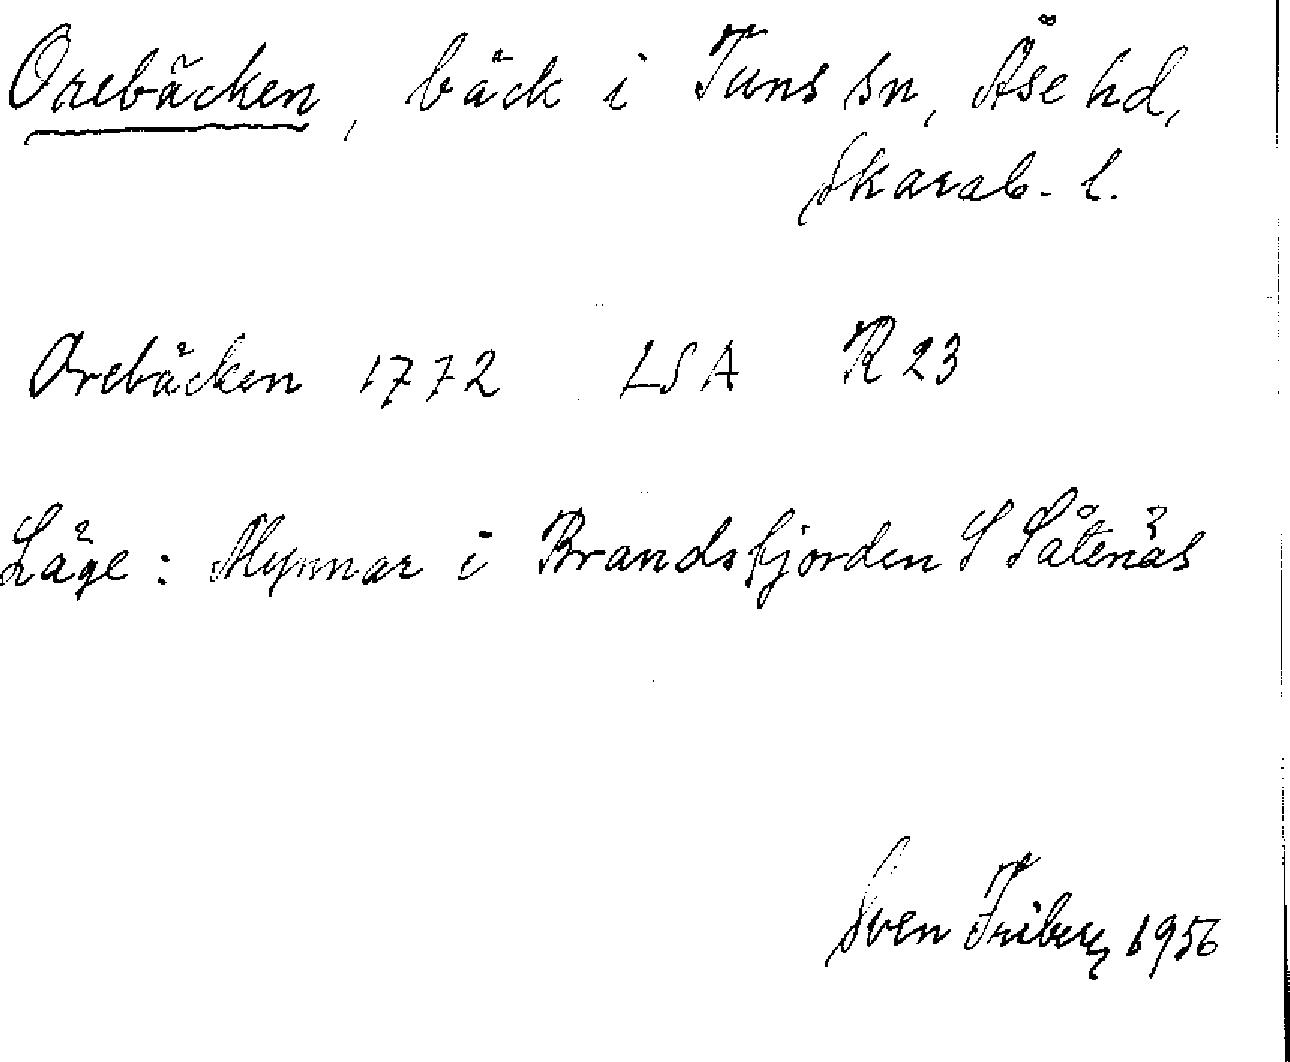 Orebäcken, bäck i Tuns sn, Åse hd,
Skarab. l.
Orebäcken 1772 LSA R 23
Läge: Mynnar i Brandsfjorden S Såtenäs
Sven Friberg 1956